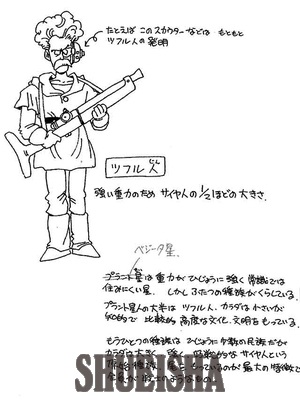 たとえば このスカウターなどは もともと
ツフル人の 発明
ツフル人
強い重力のため サイヤ人の 1/2 ほどの 大きさ.
ベジータ星.
プラント星は 重力が ひじょうに 強く 常識では
住みにくい星. しかし ふたつの 種族が くらしている.
プラント星人の 大半は ツフル人. カラダは 小さいが
知的で 比較的 高度な 文化. 文明を もっている.
もうひとつの 種族は ひじょうに 少数の 民族だが
カラダは 大きく 強く サイヤ人という
原始種族. 最大の 特徴で
SHUEISHA